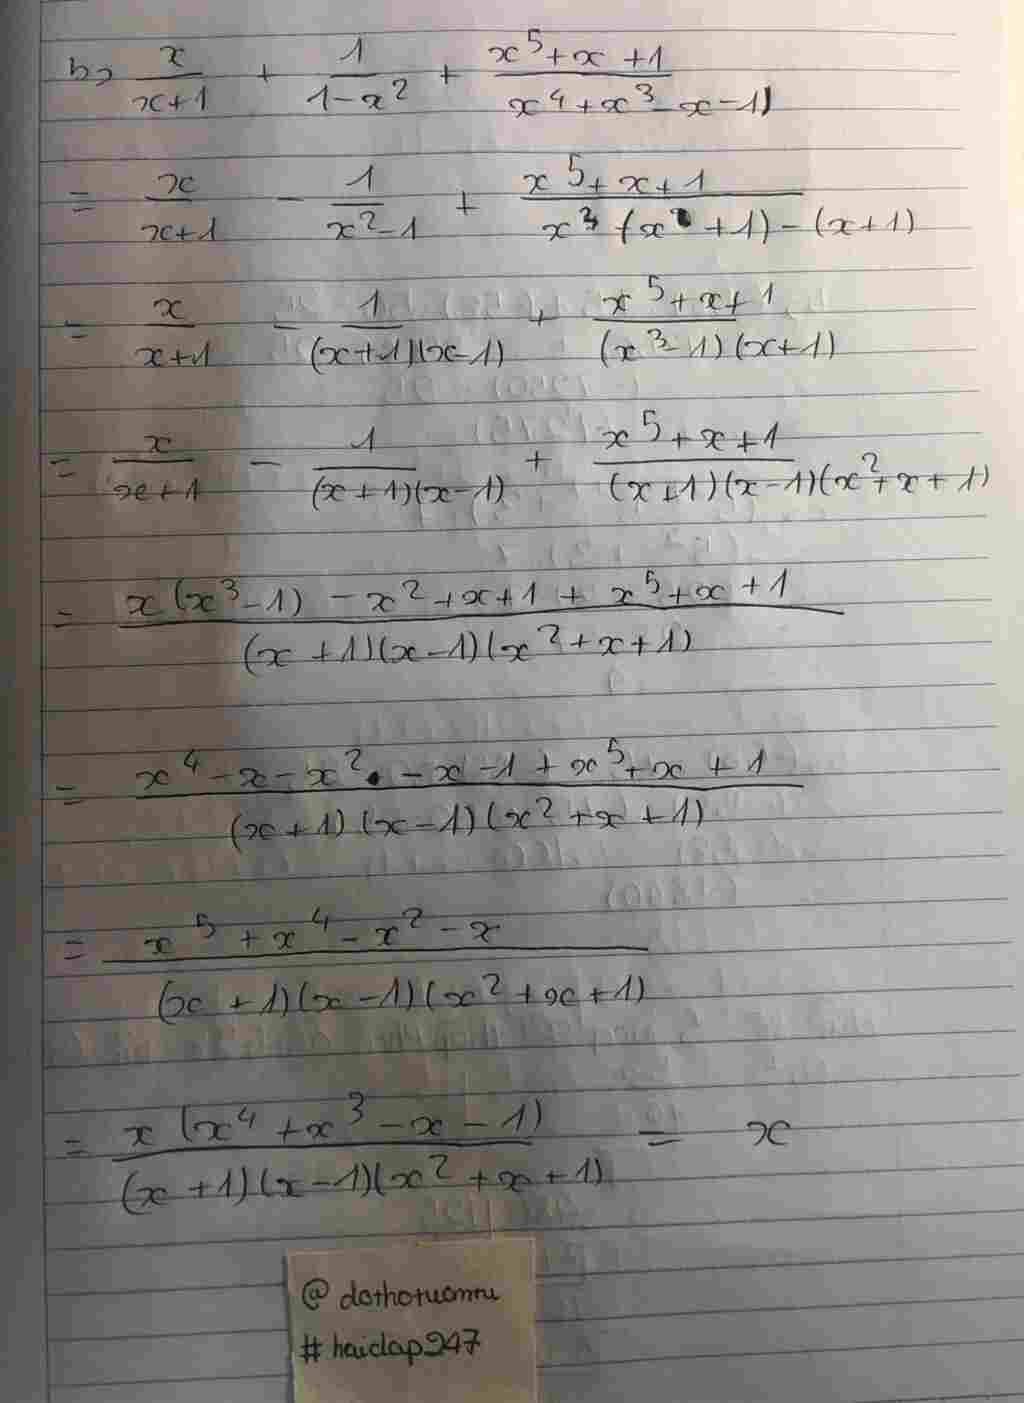 b> x/(x+1) + 1/(1-x²) + (x⁵+x+1)/(x⁴+x³-x-1)
= x/(x+1) - 1/(x²-1) + (x⁵+x+1)/(x³(x+1)-(x+1))
= x/(x+1) - 1/((x+1)(x-1)) + (x⁵+x+1)/((x³-1)(x+1))
= x/(x+1) - 1/((x+1)(x-1)) + (x⁵+x+1)/((x+1)(x-1)(x²+x+1))
= (x(x³-1) - x²+x+1 + x⁵+x+1)/((x+1)(x-1)(x²+x+1))
= (x⁴-x-x²-x-1+x⁵+x+1)/((x+1)(x-1)(x²+x+1))
= (x⁵+x⁴-x²-x)/((x+1)(x-1)(x²+x+1))
= (x(x⁴+x³-x-1))/((x+1)(x-1)(x²+x+1)) = x
@dothotuonru
#haidap247